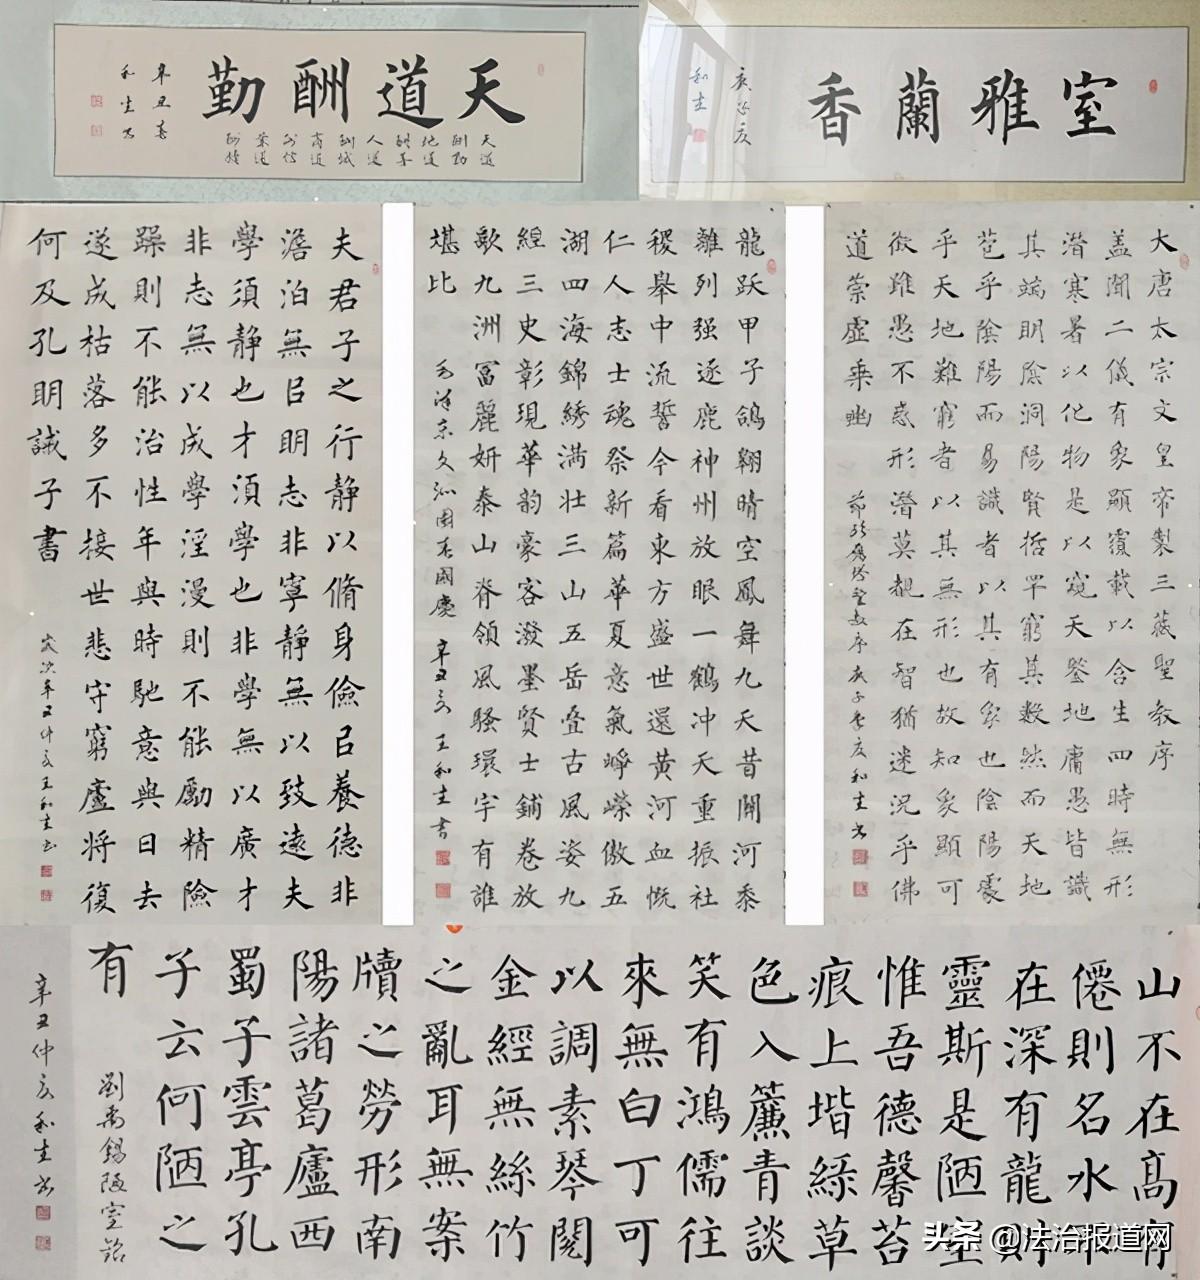 天道酬勤
天道
酬勤
地道
酬善
人道
酬诚
商道
酬信
業道
酬精
辛丑春
和生书
室雅蘭香
庚子夏
和生
夫君子之行静以脩身儉㠯養德非
澹泊無㠯明志非寧靜無以致遠夫
學須静也才須學也非學無以廣才
非志無以成學淫漫則不能勵精險
躁則不能治性年與時馳意與日去
遂成枯落多不接世悲守窮廬將復
何及孔明誡子書
歲次辛丑仲夏王和生书
龍跃甲子鴿翱晴空鳳舞九天昔開河黍
離列强逐鹿神州放眼一鶴冲天重振社
稷舉中流誓今看東方盛世還黄河血慨
仁人志士魂祭新篇華夏意氣崢嶸傲五
湖四海錦綉满壮三山五岳叠古風姿九
煌三史彰現華韵豪客潑墨賢士鋪卷放
歌九洲富麗妍泰山脊領風騷環宇有誰
堪比
毛泽东文沁園春國慶
辛丑夏王和生書
大唐太宗文皇帝製三藏聖教序
盖聞二儀有象顯覆載以含生四時無形
潜寒暑以化物是以窺天鑒地庸愚皆識
其端明陰洞陽賢哲罕窮其數然而天地
苞乎陰陽而易識者以其有象也陰陽處
乎天地難窮者以其無形也故知象顯可
徵雖愚不惑形潛莫覩在智猶迷況乎佛
道崇虛乘幽
節臨雁塔聖教序庚子季夏和生书
山不在高有
僊則名水不
在深有龍則
靈斯是陋室
惟吾德馨苔
痕上堦緑草
色入簾青談
笑有鴻儒往
來無白丁可
以調素琴閱
金經無絲竹
之亂耳無案
牘之勞形南
陽諸葛廬西
蜀子雲亭孔
子云何陋之
有
劉禹錫陋室銘
辛丑仲夏和生书
头条 @法治报道网